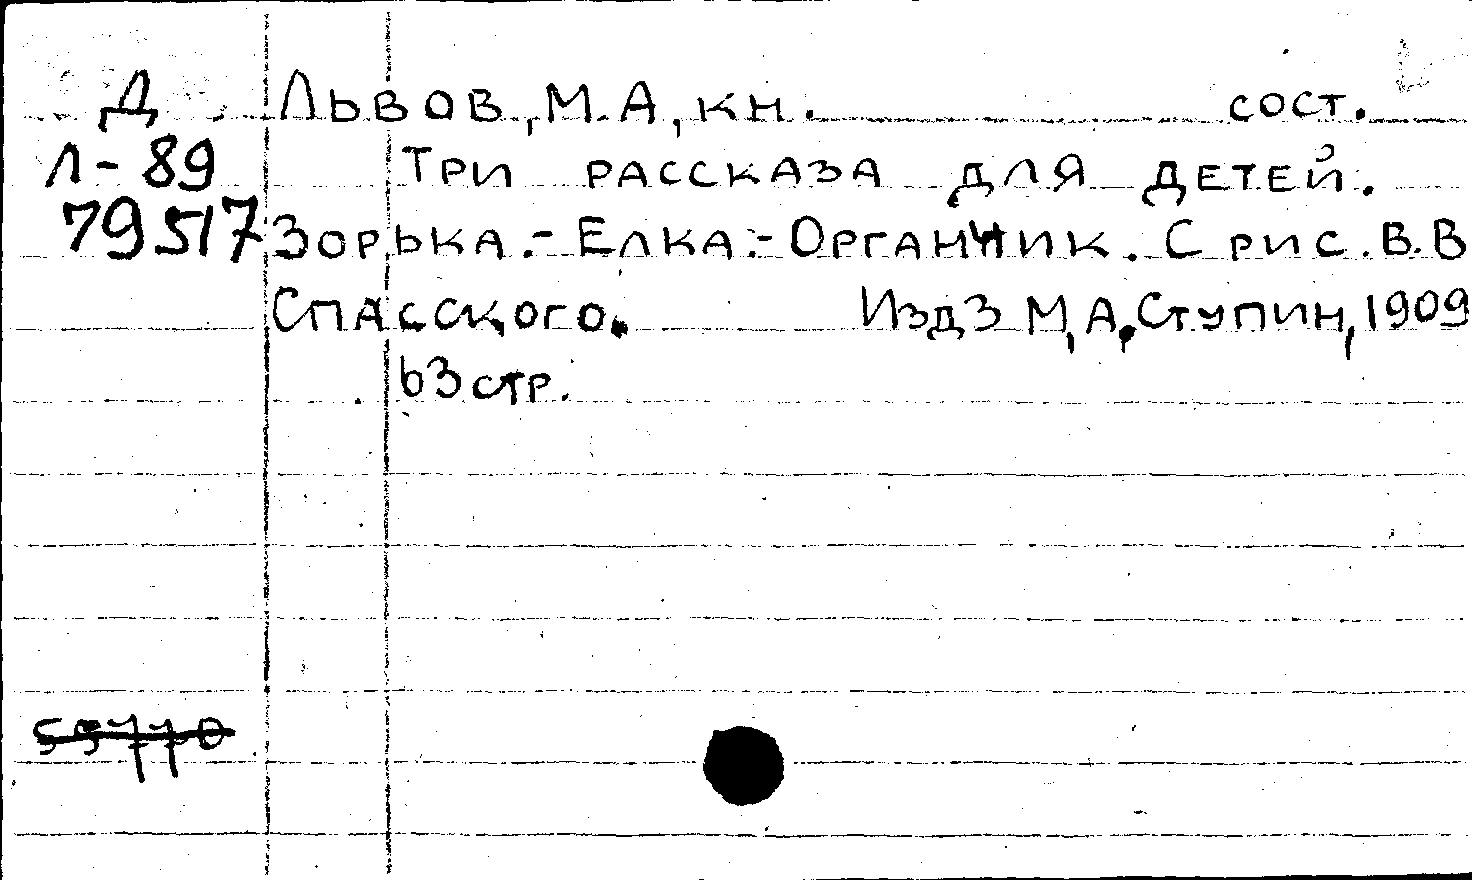 Д Львов, М. А, кн. сост.
Л-89 Три рассказа для детей.
79517 Зорька.- Елка.- Органчик. С рис. В. В
Спасского. Изд3 М, А. Ступин, 1909
63 стр.
55770